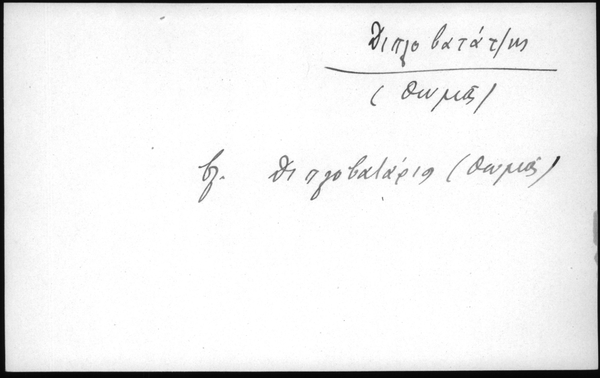 Διπλοβατάτζης
(Θωμᾶς)
βλ. Διπλοβατάρις (Θωμᾶς)